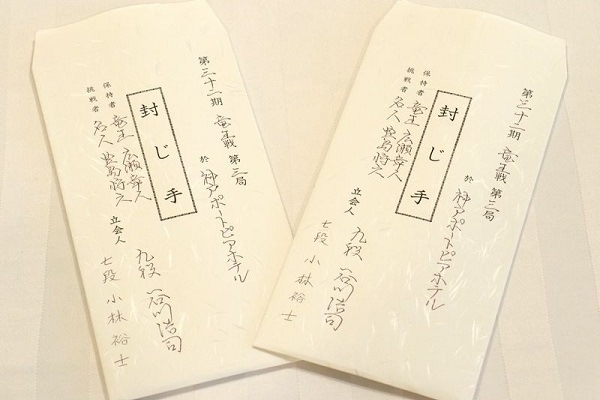 第三十二期 竜王戦 第三局
於 神戸ポートピアホテル
封じ手
保持者 竜王 広瀬章人
挑戦者 名人 豊島将之
立会人 九段 谷川浩司
七段 小林裕士
第三十二期 竜王戦 第三局
於 神戸ポートピアホテル
封じ手
保持者 竜王 広瀬章人
挑戦者 名人 豊島将之
立会人 九段 谷川浩司
七段 小林裕士